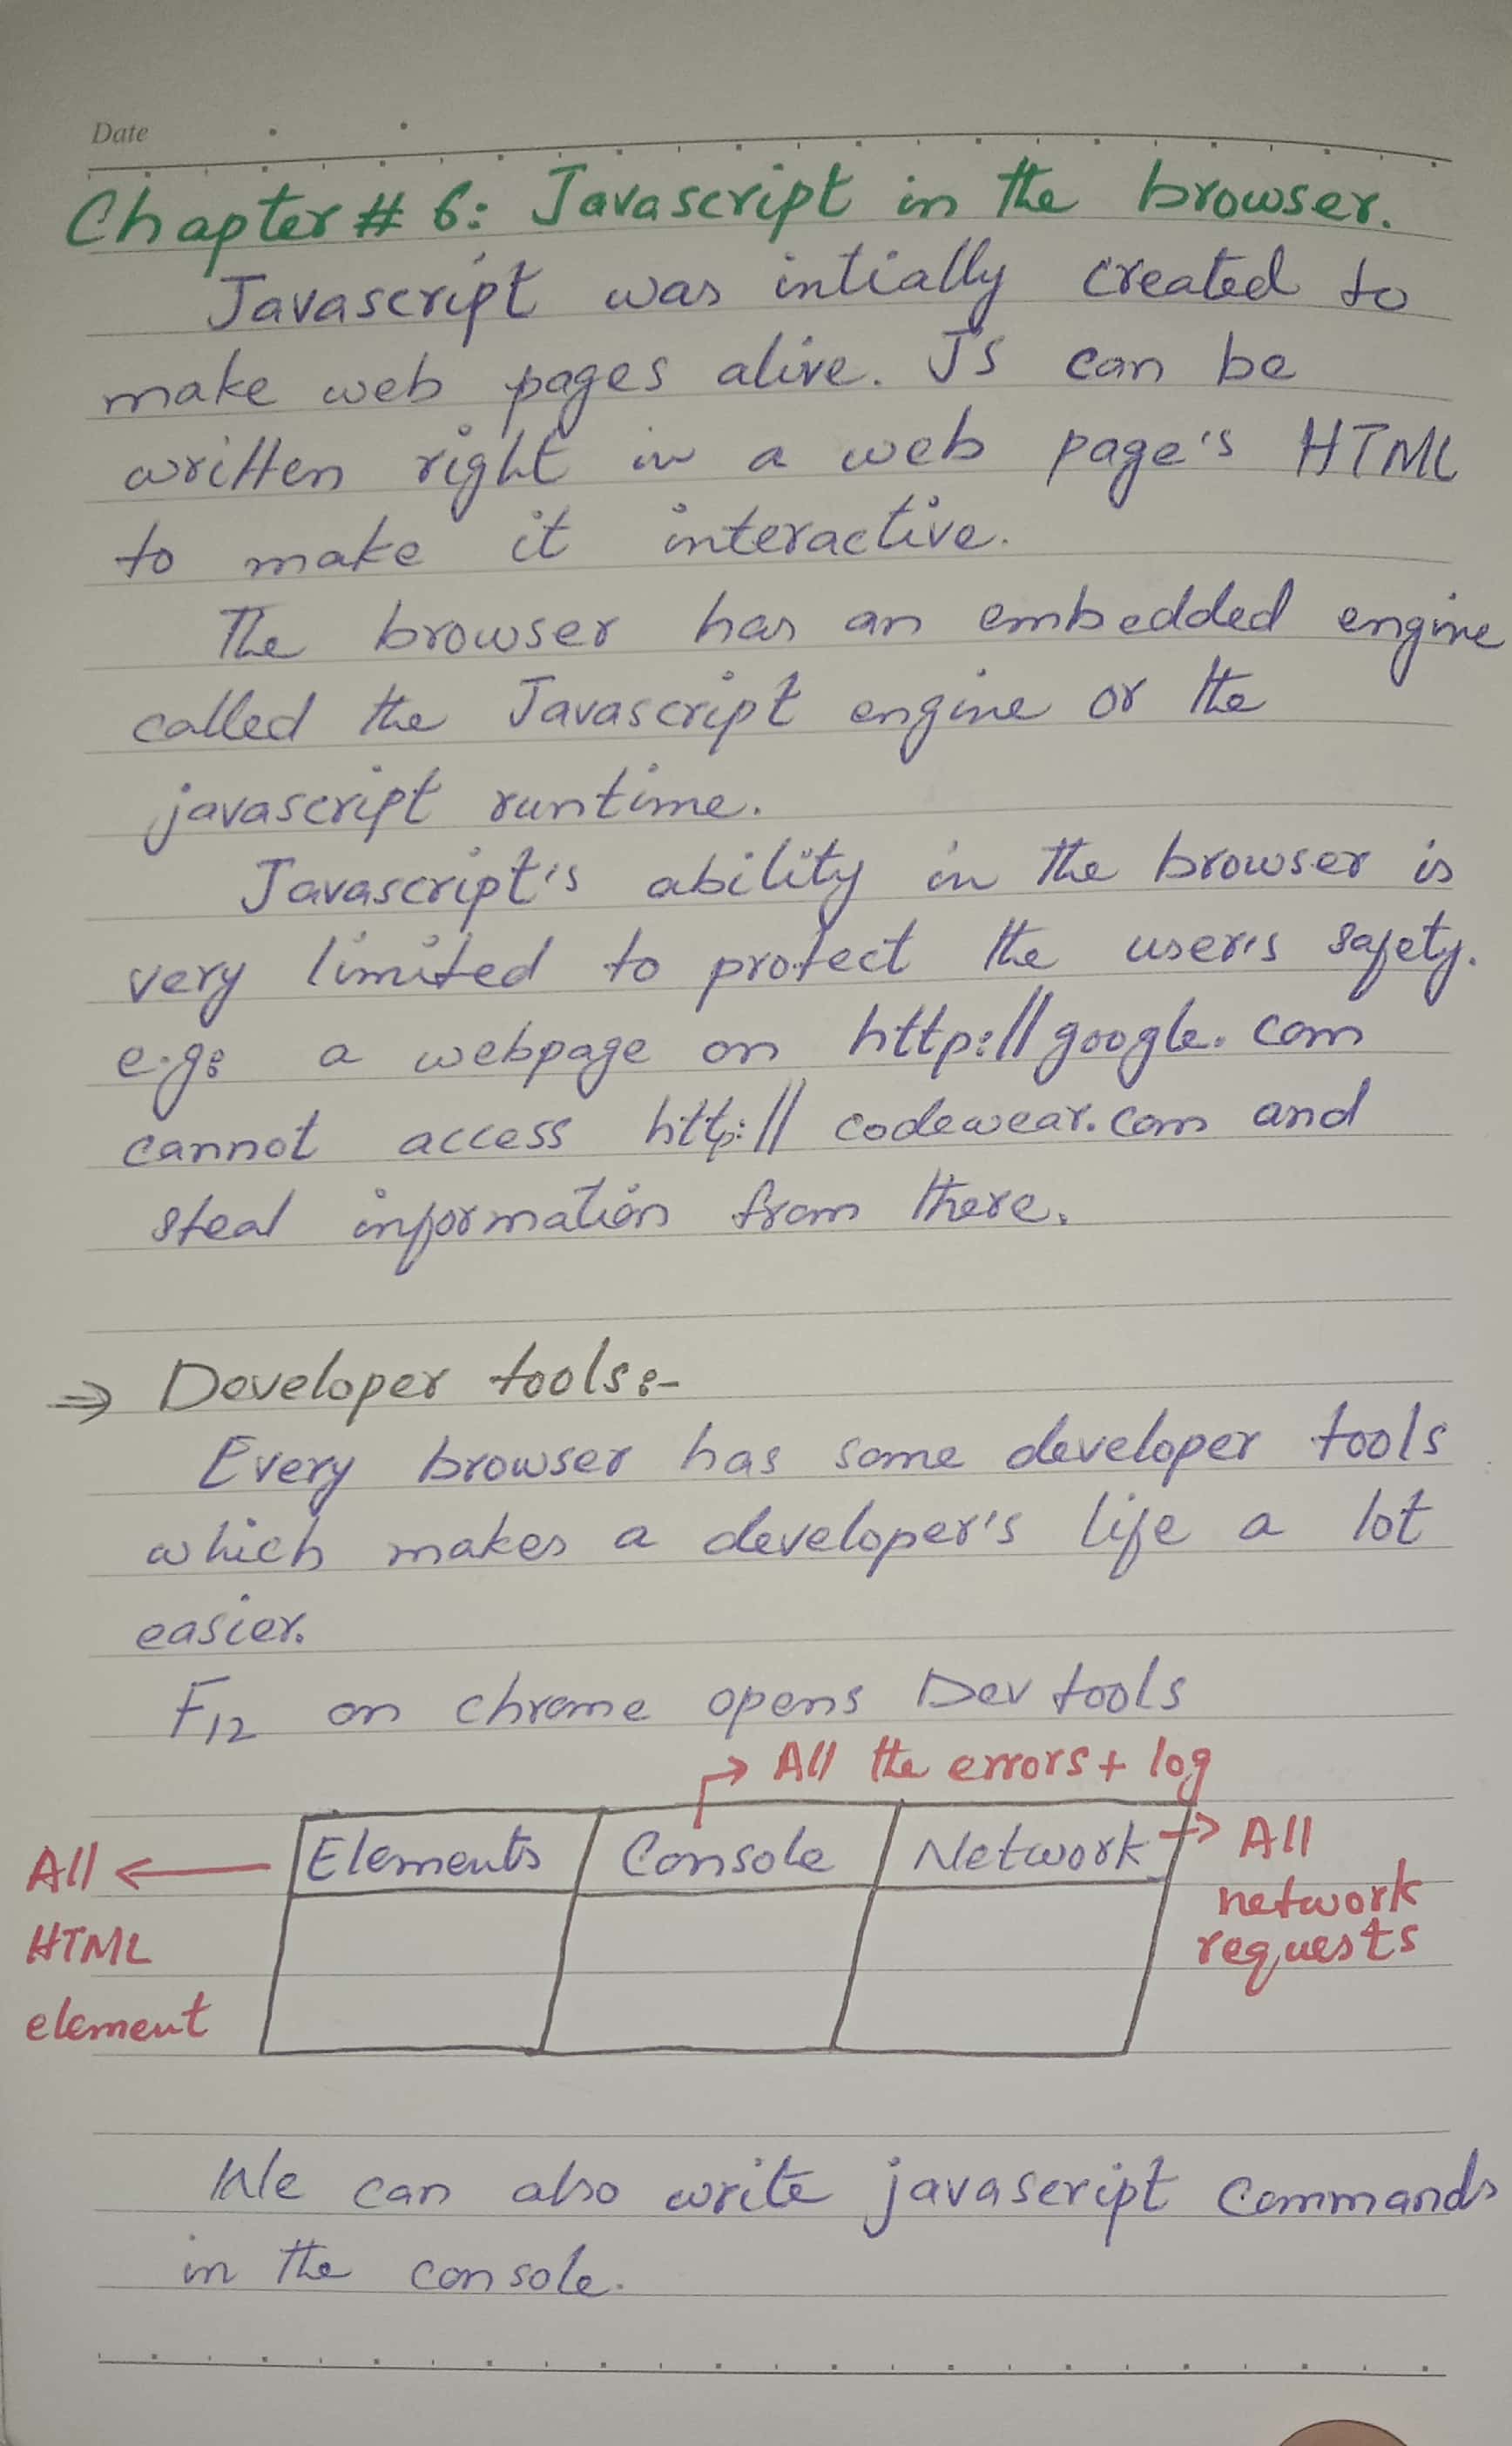 Date
Chapter # 6: Javascript in the browser.
Javascript was intially created to
make web pages alive. JS can be
written right in a web page's HTML
to make it interactive.
The browser has an embedded engine
called the Javascript engine or the
javascript runtime.
Javascript's ability in the browser is
very limited to protect the user's safety.
e.g: a webpage on http://google.com
cannot access http://codewear.com and
steal information from there.
⇒ Developer tools:-
Every browser has some developer tools
which makes a developer's life a lot
easier.
F12 on chrome opens Dev tools
→ All the errors + log
All ← Elements Console Network → All
HTML network
element requests
We can also write javascript commands
in the console.